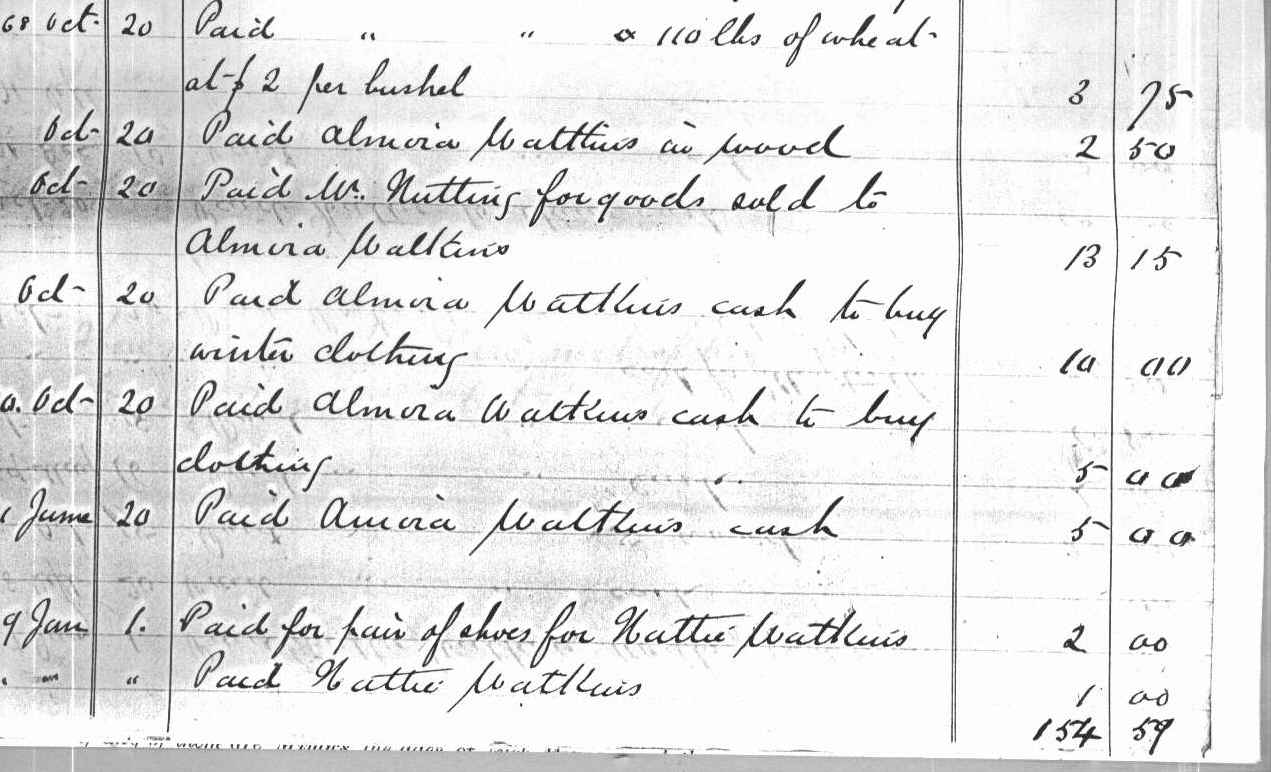 68 Oct. 20 Paid " " & 110 lbs of wheat
at $ 2 per bushel 3 75
Oct 20 Paid Almira Watkins in wood 2 50
Oct 20 Paid Mr. Nutting for goods sold to
Almira Watkins 13 15
Oct 20 Paid Almira Watkins cash to buy
winter clothing 10 00
Oct 20 Paid Almira Watkins cash to buy
clothing 5 00
June 20 Paid Amira Watkins cash 5 00
9 Jan 1. Paid for pair of shoes for Hattie Watkins 2 00
" " Paid Hattie Watkins 1 00
154 59